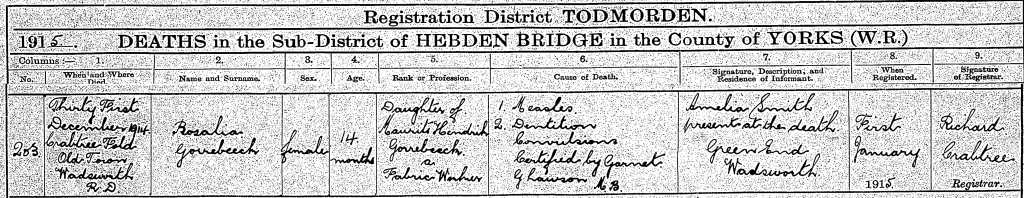 Registration District TODMORDEN.
1915. DEATHS in the Sub-District of HEBDEN BRIDGE in the County of YORKS (W.R.)
Columns :— 1. 2. 3. 4. 5. 6. 7. 8. 9.
No. When and Where Died. Name and Surname. Sex. Age. Rank or Profession. Cause of Death. Signature, Description, and Residence of Informant. When Registered. Signature of Registrar.
253
Thirty First
December 1914
Crabtree Fold
Old Town
Wadsworth
R.D
Rosalia
Gorrebeech
female
14
months
Daughter of
Maurits Hendrik
Gorrebeech
a
Fabric Worker
1. Measles
2. Dentition
Convulsions
Certified by Garnet
G Lawson M.B.
Amelia Smith
present at the death
Green End
Wadsworth
First
January
1915.
Richard
Crabtree
Registrar.